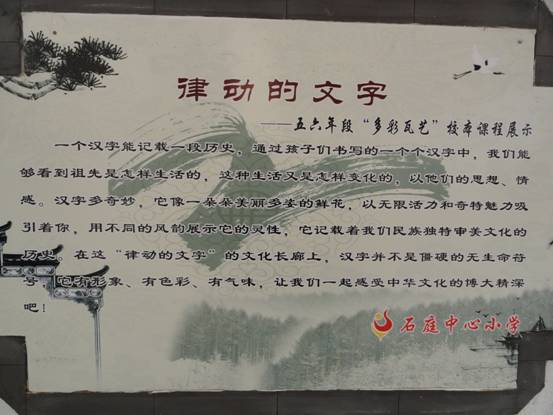 律动的文字
——五六年段“多彩瓦艺”校本课程展示
一个汉字能记载一段历史，通过孩子们书写的一个个汉字中，我们能
够看到祖先是怎样生活的，这种生活又是怎样变化的，以他们的思想、情
感。汉字多奇妙，它像一朵朵美丽多姿的鲜花，以无限活力和奇特魅力吸
引着你，用不同的风韵展示它的灵性，它记载着我们民族独特审美文化的
历史。在这“律动的文字”的文化长廊上，汉字并不是僵硬的无生命符
号，它有形象、有色彩、有气味，让我们一起感受中华文化的博大精深
吧！
石庭中心小学